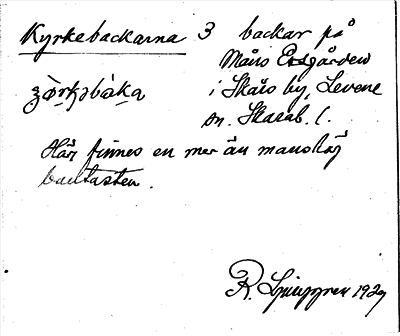 Kyrkebackarna 3 backar på
Måns Ersgården
i Skårs by, Levene
sn. Skarab. l.
Här finnes en mer än manshög
bautasten.
R. Ljunggren 1929